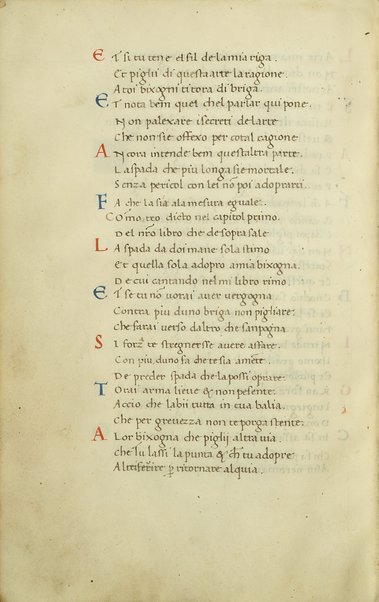 E T si tu tene el fil de la mia riga.
Et piglii di questa arte la ragione.
A toi bixogni ti tora di briga.
E T nota bem quel chel parlar qui pone.
Non palexare i secreti de larte
Che non sie offexo per cotal cagione
A Ncora intende bem questaltra parte.
La spada che piu longa sie mortale.
Senza pericol con lei nõ poi adoprarti.
F A che la sia ala mesura eguale.
Como tto dicto nel capitol primo.
Del nr̃o libro che desopra sale
L A spada da doi mane sola stimo
Et quella sola adopro a mia bixogna.
De cui cantando nel mi libro rimo.
E T se tu nõ vorai aver vergogna.
Contra piu duno briga non pigliare:
Che farai verso daltro che sampogna.
S I forza te stregnersse avere affare.
Con piu duno fa che te sia a mente
De preder spada che la possi oprare.
T Orai arma lieve & non pesente:
Accio che labii tutta in tua balia.
Che per grevezza non te porga stente:
A Lor bixogna che piglij altra via.
che tu lassi la punta & ch tu adopre
Altri ferire p ritornare alquia.